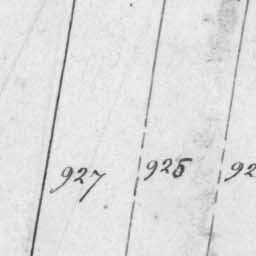 927 925 92